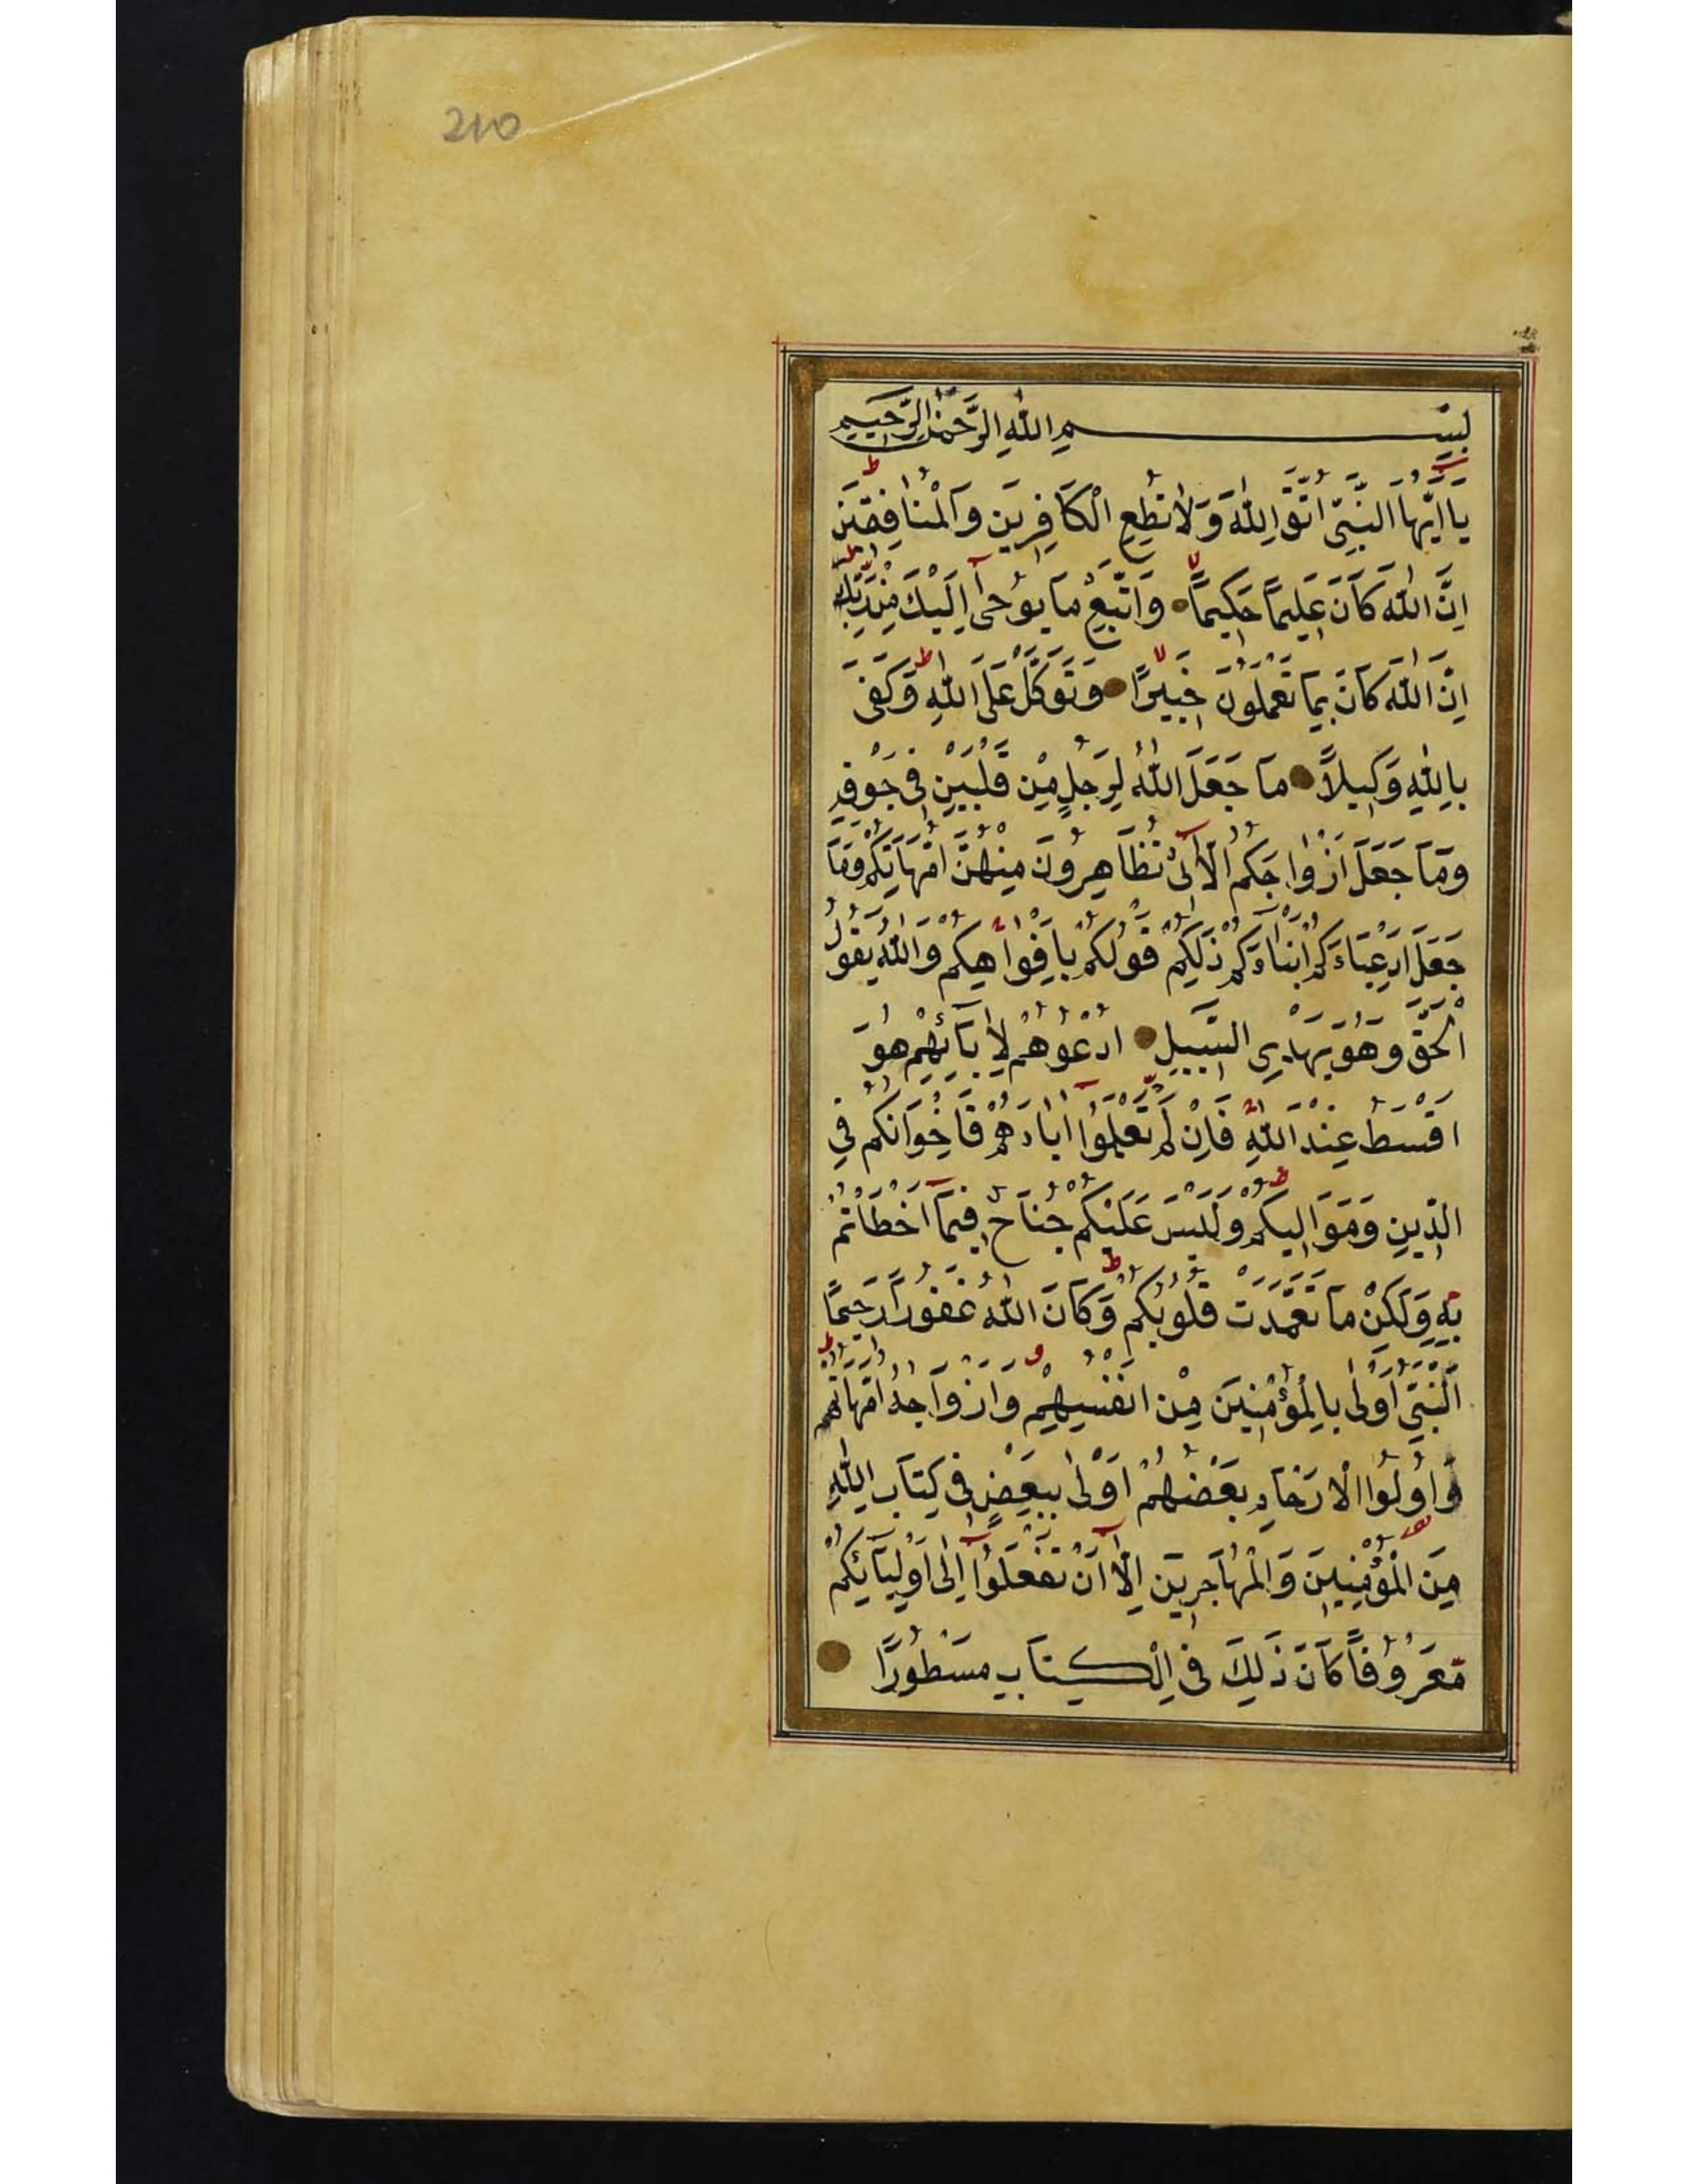 210
بِسْمِ اللهِ الرَّحْمٰنِ الرَّحِيمِ
يَا اَيُّهَا النَّبِيُّ اتَّقِ اللهَ وَلَا تُطِعِ الْكَافِرِينَ وَالْمُنَافِقِينَ
اِنَّ اللهَ كَانَ عَلِيمًا حَكِيمًا وَاتَّبِعْ مَا يُوحٰى اِلَيْكَ مِنْ رَبِّكَ
اِنَّ اللهَ كَانَ بِمَا تَعْمَلُونَ خَبِيرًا وَتَوَكَّلْ عَلَى اللهِ وَكَفٰى
بِاللهِ وَكِيلًا مَا جَعَلَ اللهُ لِرَجُلٍ مِنْ قَلْبَيْنِ فِى جَوْفِهِ
وَمَا جَعَلَ اَزْوَاجَكُمُ الْلَآئِى تُظَاهِرُونَ مِنْهُنَّ اُمَّهَاتِكُمْ وَمَا
جَعَلَ اَدْعِيَاءَكُمْ اَبْنَاءَكُمْ ذٰلِكُمْ قَوْلُكُمْ بِاَفْوَاهِكُمْ وَاللهُ يَقُولُ
الْحَقَّ وَهُوَ يَهْدِى السَّبِيلَ اُدْعُوهُمْ لِاٰبَآئِهِمْ هُوَ
اَقْسَطُ عِنْدَ اللهِ فَاِنْ لَمْ تَعْلَمُوا اٰبَاءَهُمْ فَاِخْوَانُكُمْ فِى
الدِّينِ وَمَوَالِيكُمْ وَلَيْسَ عَلَيْكُمْ جُنَاحٌ فِيمَا اَخْطَأْتُمْ
بِهِ وَلٰكِنْ مَا تَعَمَّدَتْ قُلُوبُكُمْ وَكَانَ اللهُ غَفُورًا رَحِيمًا
اَلنَّبِىُّ اَوْلٰى بِالْمُؤْمِنِينَ مِنْ اَنْفُسِهِمْ وَاَزْوَاجُهُ اُمَّهَاتُهُمْ
وَاُولُوا الْاَرْحَامِ بَعْضُهُمْ اَوْلٰى بِبَعْضٍ فِى كِتَابِ اللهِ
مِنَ الْمُؤْمِنِينَ وَالْمُهَاجِرِينَ اِلَّا اَنْ تَفْعَلُوا اِلٰى اَوْلِيَآئِكُمْ
مَعْرُوفًا كَانَ ذٰلِكَ فِى الْكِتَابِ مَسْطُورًا